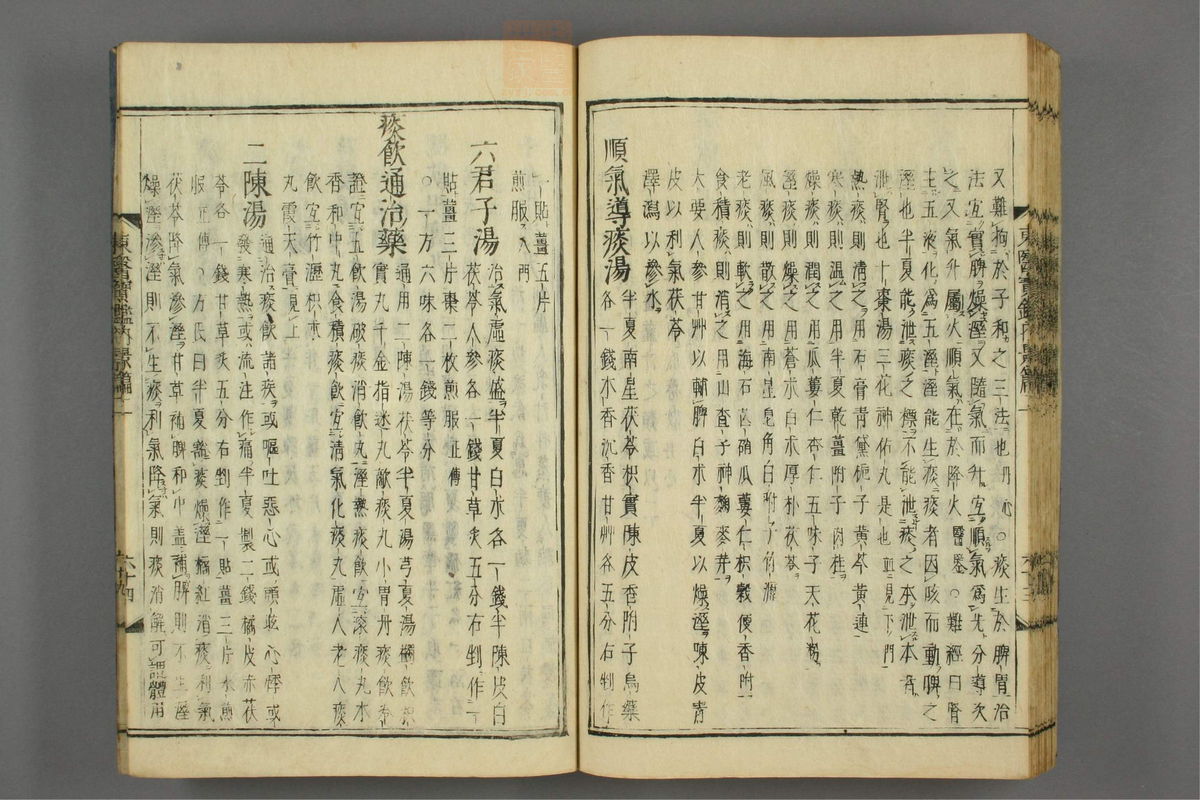 又難拘於子和之三法也丹心○痰生於脾胃治
法宜實脾燥溼又隨氣而升宜順氣爲先分導次
之又氣升屬火順氣在於降火醫鑑○難經曰腎
主五液化爲五溼能生痰痰者因咳而動脾之
溼也半夏能泄痰之標不能泄痰之本泄本者
泄腎也十棗湯三花神佑丸是也並見下門
熱痰則清之用石膏青黛梔子黃芩黃連
寒痰則温之用半夏乾薑附子肉桂
燥痰則潤之用瓜蔞仁杏仁五味子天花粉
溼痰則燥之用蒼朮白朮厚朴茯苓
風痰則散之用南星皂角白附子竹瀝
老痰則軟之用海石芒硝瓜蔞仁枳殼便香附
食積痰則消之用山査子神麴麥芽
大要人參甘艸以輔脾白朮半夏以燥溼陳皮青
皮以利氣茯苓
澤瀉以滲水
順氣導痰湯
半夏南星茯苓枳實陳皮香附子烏藥
各一錢木香沉香甘艸各五分右剉作
一貼薑五片
煎服入門
六君子湯
治氣虛痰盛半夏白朮各一錢半陳皮白
茯苓人參各一錢甘草炙五分右剉作一
貼薑三片棗二枚煎服正傳
○一方六味各一錢等分
痰飮通治藥
通用二陳湯茯苓半夏湯芎夏湯
實丸千金指迷丸敵痰丸小胃丹痰飮
證宜五飮湯破痰消飮丸溼熱痰飮宜滚痰丸木
香和中丸食積痰飮宜淸氣化痰丸虛人老人痰
飮宜竹瀝枳朮
丸霞天膏見上
二陳湯
通治痰飮諸疾或嘔吐惡心或頭眩心悸或
發寒熱或流注作痛半夏製二錢橘皮赤茯
苓各一錢甘草炙五分右剉作一貼薑三片水煎
服正傳○方氏曰半夏豁痰燥溼橘紅消痰利氣
茯苓降氣滲溼甘草補脾和中盖補脾則不生溼
燥溼滲溼則不生痰利氣降氣則痰消解可謂體用
東醫寶鑑內景篇二
六十四
東醫寶鑑內景篇